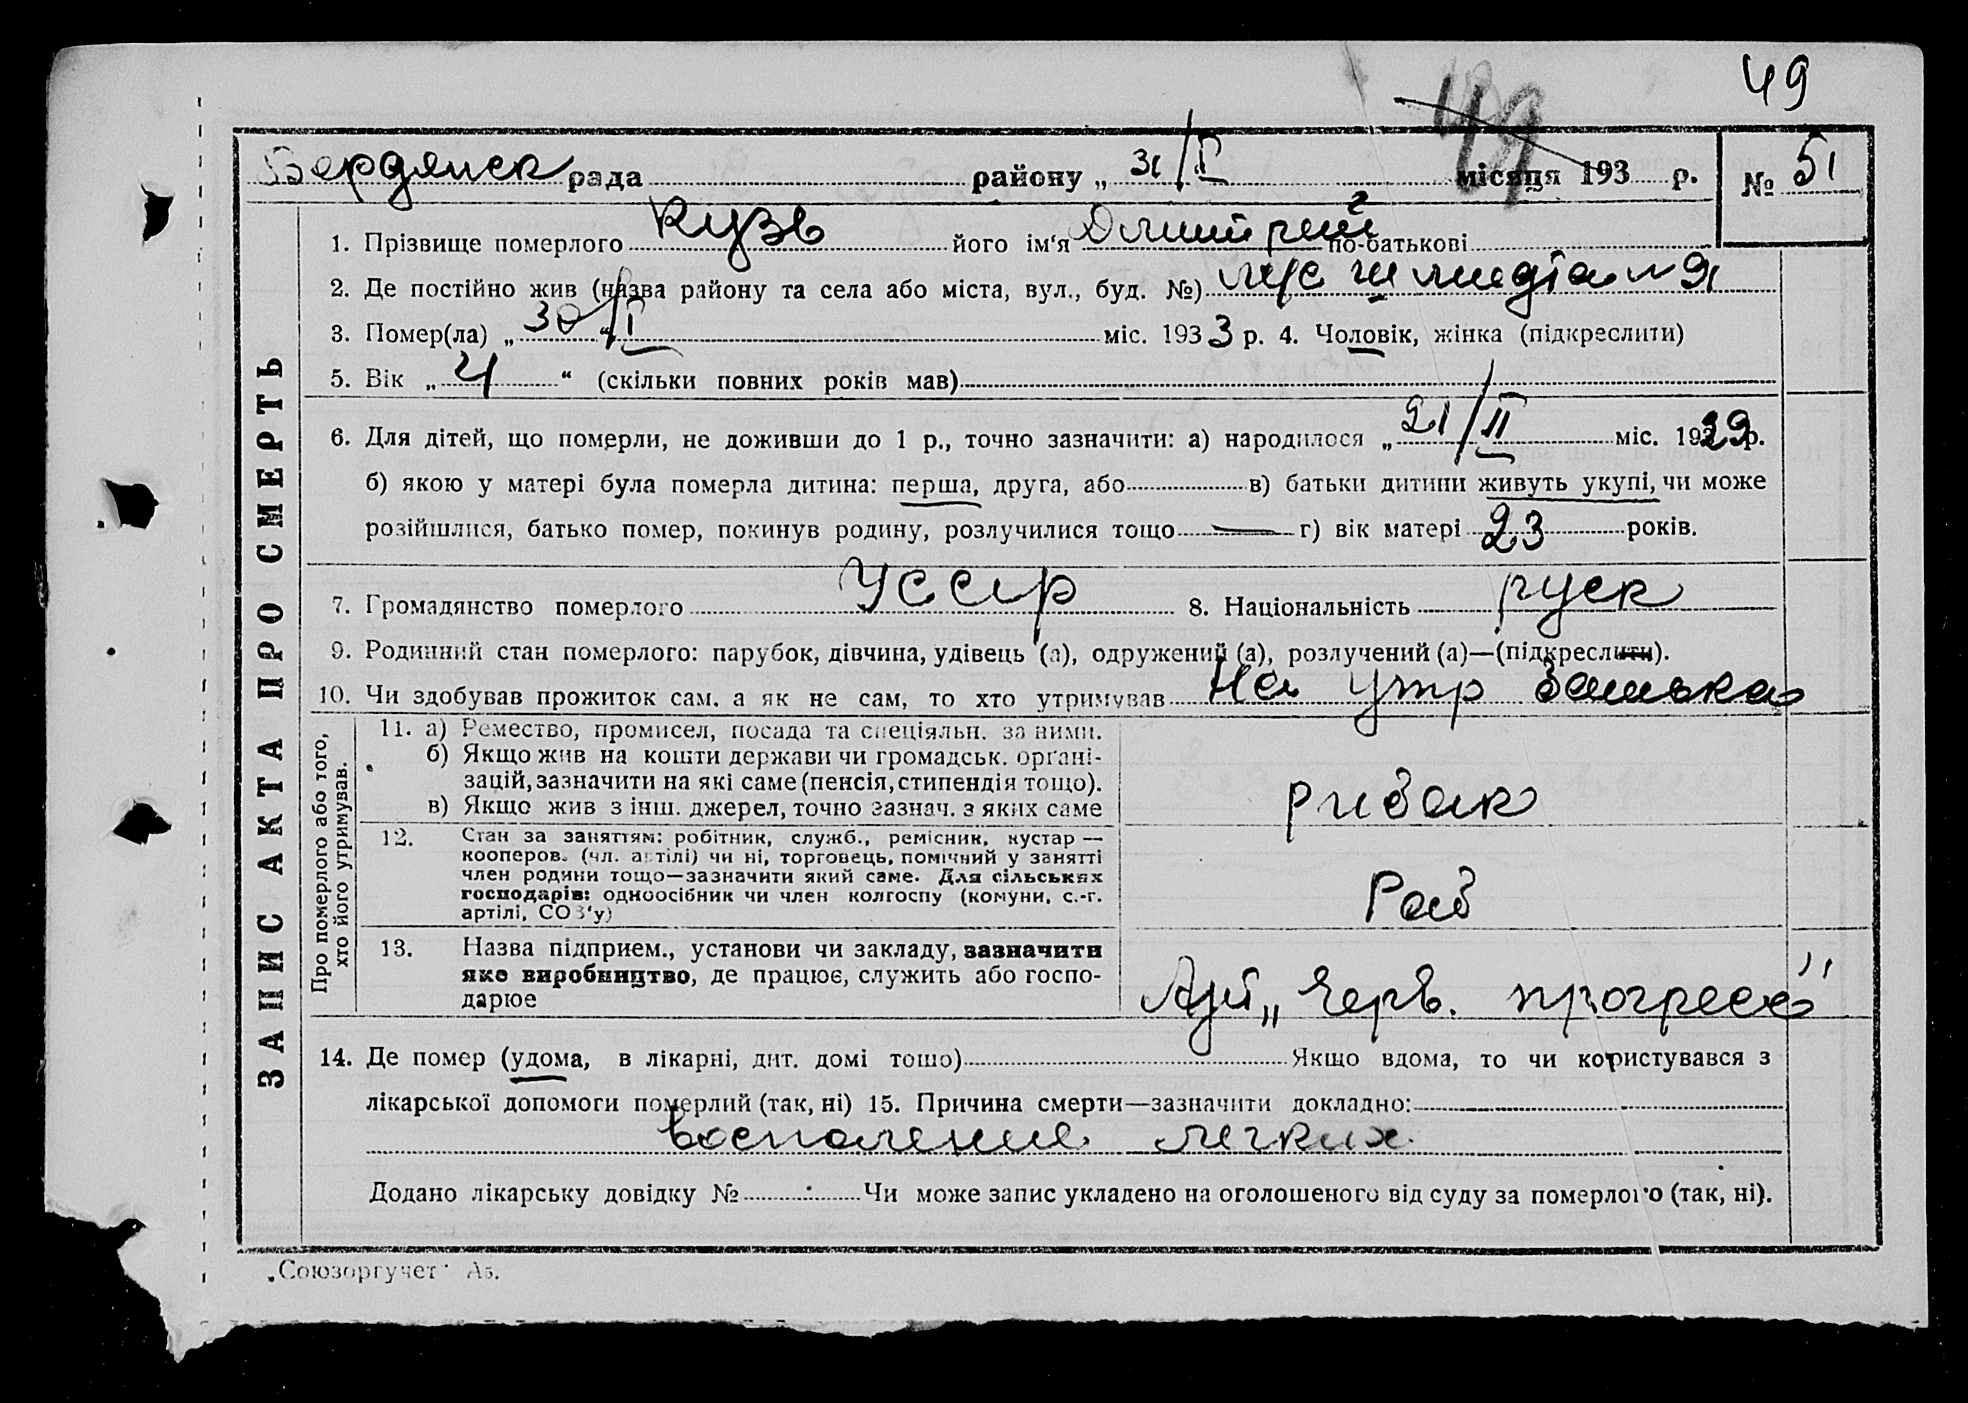 49
Бердянск рада районy „ 31/I місяця 193 р. № 51
ЗАПИС АКТА ПРО СМЕРТЬ
1. Прізвище померлого Кузь його ім'я Дмитрий по-батькові
2. Де постійно жив (назва району та села або міста, вул., буд. №)
3. Помер(ла) „ 30/I “ міс. 1933 р. 4. Чоловік, жінка (підкреслити)
5. Вік „ 4 “ (скільки повних років мав)
6. Для дітей, що померли, не доживши до 1 р., точно зазначити: а) народилося „ 21/II міс. 1929 р.
б) якою у матері була померла дитина: перша, друга, або в) батьки дитини живуть укупі, чи може
розійшлися, батько помер, покинув родину, розлучилися тощо — г) вік матері 23 років.
7. Громадянство померлого УССР 8. Національність руск
9. Родинний стан померлого: парубок, дівчина, удівець (а), одружений (а), розлучений (а)—(підкреслити).
10. Чи здобував прожиток сам, а як не сам, то хто утримував На утр батька
Про померлого або того, хто його утримував.
11. а) Ремество, промисел, посада та спеціяльн. за ними.
б) Якщо жив на кошти держави чи громадськ. орґані-
зацій, зазначити на які саме (пенсія, стипендія тощо).
в) Якщо жив з інш. джерел, точно зазнач. з яких саме
рибак
12. Стан за заняттям: робітник, служб., ремісник, кустар —
кооперов. (чл. артілі) чи ні, торговець, помічний у занятті
член родини тощо—зазначити який саме. Для сільських
господарів: одноосібник чи член колгоспу (комуни, с.-г.
артілі, СОЗ'у)
Раб
13. Назва підприєм., установи чи закладу, зазначити
яке виробництво, де працює, служить або госпо-
дарює
„Черв. прогресс"
14. Де помер (удома, в лікарні, дит. домі тощо) Якщо вдома, то чи користувався з
лікарської допомоги померлий (так, ні) 15. Причина смерти—зазначити докладно:
воспаление легких
Додано лікарську довідку № Чи може запис укладено на оголошеного від суду за померлого (так, ні).
„Союзоргучет" А5.